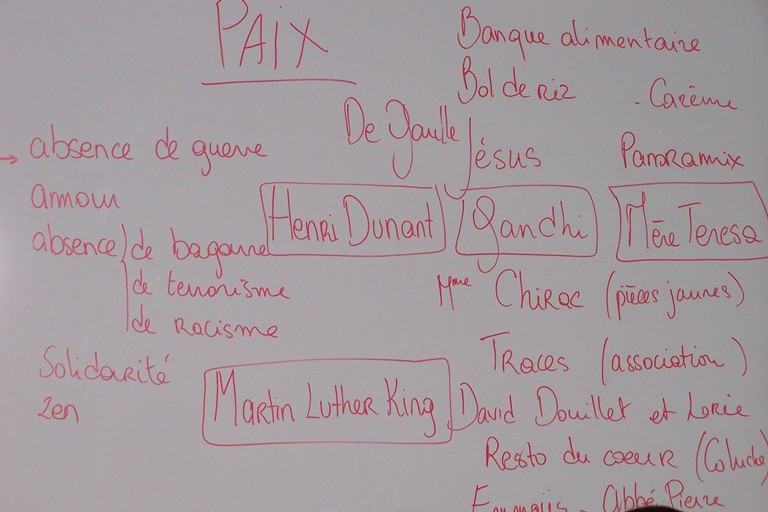 PAIX
→ absence de guerre
amour
absence de bagarre
de terrorisme
de racisme
Solidarité
zen
Banque alimentaire
Bol de riz - Carême
De Gaulle Jésus Panoramix
Henri Dunant Gandhi Mère Teresa
Mme Chirac (pièces jaunes)
Traces (association)
Martin Luther King David Douillet et Lorie
Resto du coeur (Coluche)
Emmaüs - Abbé Pierre